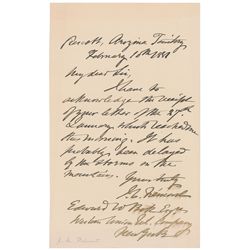 Prescott, Arizona Territory
February 10th 1881
My dear Sir,
I have to
acknowledge the receipt
of your letter of the 27th
January which reached me
this morning. It has
probably been delayed
by the storms on the
mountains.
Yours truly
J. C. Frémont
Edward W.
Western Union Tel. Company
New York